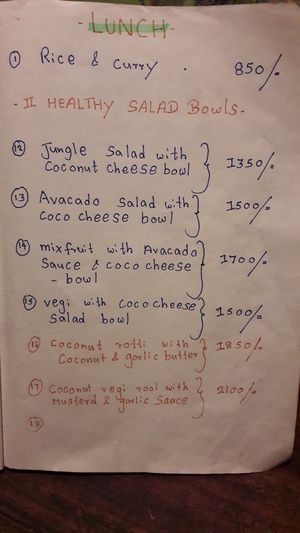 - LUNCH -
① Rice & Curry . 850/-
- II HEALTHY SALAD Bowls -
⑫ Jungle Salad with
Coconut cheese bowl } 1350/-
⑬ Avacado Salad with
coco cheese bowl } 1500/-
⑭ mixfruit with Avacado
Sauce & coco cheese
- bowl } 1700/-
⑮ vegi with coco cheese
Salad bowl } 1500/-
⑯ Coconut rotti with
Coconut & garlic butter } 1850/-
⑰ Coconut vegi rool with
Musterd & garlic Sauce } 2100/-
⑱